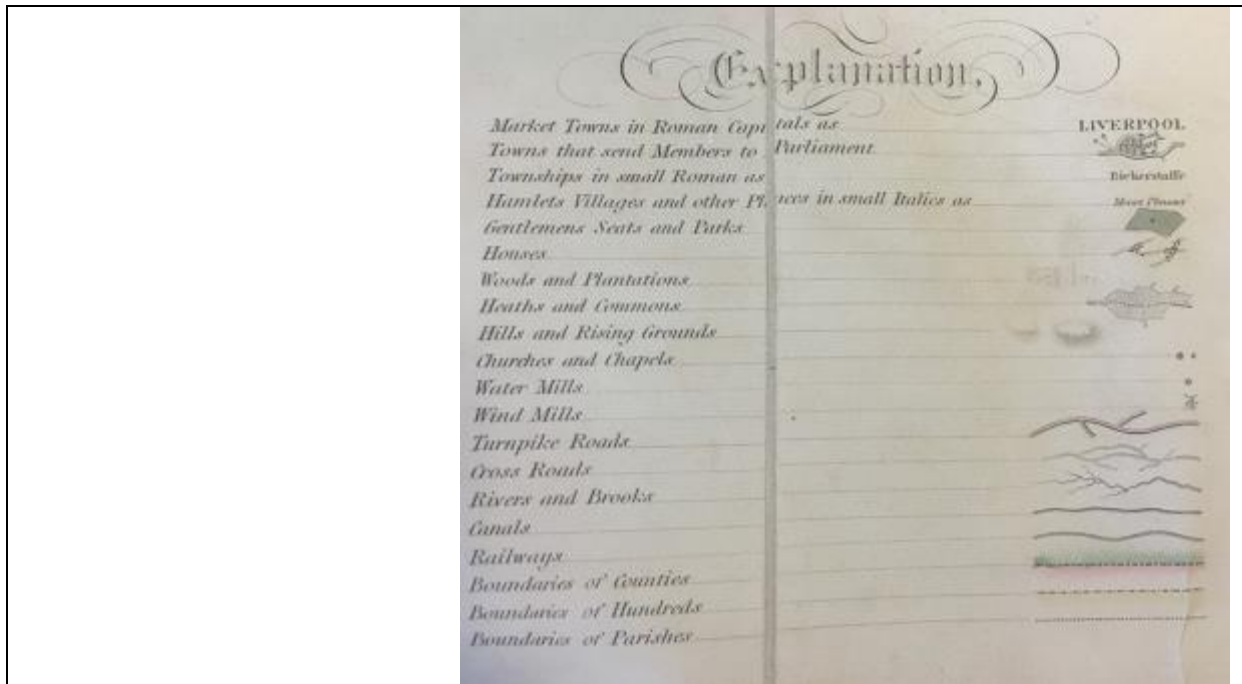 Explanation.
Market Towns in Roman Capitals as LIVERPOOL
Towns that send Members to Parliament
Townships in small Roman as Bickerstaffe
Hamlets Villages and other Places in small Italics as
Gentlemens Seats and Parks
Houses
Woods and Plantations
Heaths and Commons
Hills and Rising Grounds
Churches and Chapels
Water Mills
Wind Mills
Turnpike Roads
Cross Roads
Rivers and Brooks
Canals
Railways
Boundaries of Counties
Boundaries of Hundreds
Boundaries of Parishes